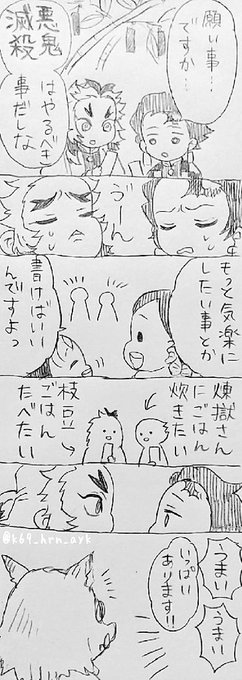 願い事…
ですか…
悪鬼
滅殺
はやるべき
事だしな
うーん
もっと気楽に
したい事とか
書けばいい
んですよっ
煉獄さん
にごはん
炊きたい
枝豆
ごはん
たべたい
@k69_hrn_ayk
うまい
うまい
いっぱい
あります!!